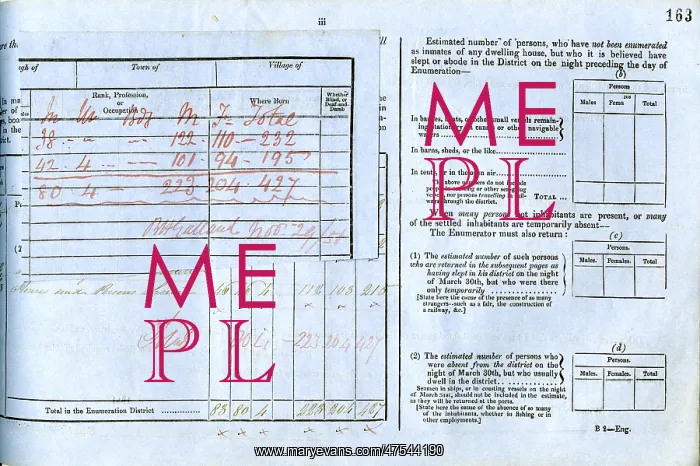 iii
163
gh of Town of Village of
Rank, Profession,
or
Occupation
Where Born
Whether
Blind, or
Deaf-and-
Dumb
In U Bdg M F Total
38 - " - 122 - 110 - 232
42 4 - - 101 - 94 - 195
80 4 - 223 204 427
Nov
223 204 427
Total in the Enumeration District ............... 83 80 4 223 204 427
Estimated number of persons, who have not been enumerated
as inmates of any dwelling house, but who it is believed have
slept or abode in the District on the night preceding the day of
Enumeration—
(b)
Persons
Males Females Total
In barges, boats, or other small vessels remain-
ing stationary on canals or other navigable
waters
In barns, sheds, or the like
In tents or in the open air
The above numbers do not include
people in coasting or other sea-going
vessels, nor persons travelling by rail-
ways through the district.
TOTAL ...
When many persons not inhabitants are present, or many
of the settled inhabitants are temporarily absent—
The Enumerator must also return :
(c)
Persons.
Males. Females. Total
(1) The estimated number of such persons
who are returned in the subsequent pages as
having slept in his district on the night
of March 30th, but who were there
only temporarily
[State here the cause of the presence of so many
strangers—such as a fair, the construction of
a railway, &c.]
(d)
Persons.
Males. Females. Total
(2) The estimated number of persons who
were absent from the district on the
night of March 30th, but who usually
dwell in the district
Seamen in ships, or in coasting vessels on the night
of March 31st, should not be included in the estimate,
as they will be returned at the ports.
[State here the cause of the absence of so many
of the inhabitants, whether in fishing or in
other employments.]
B 2—Eng.
ME
PL
ME
PL
www.maryevans.com/47544190